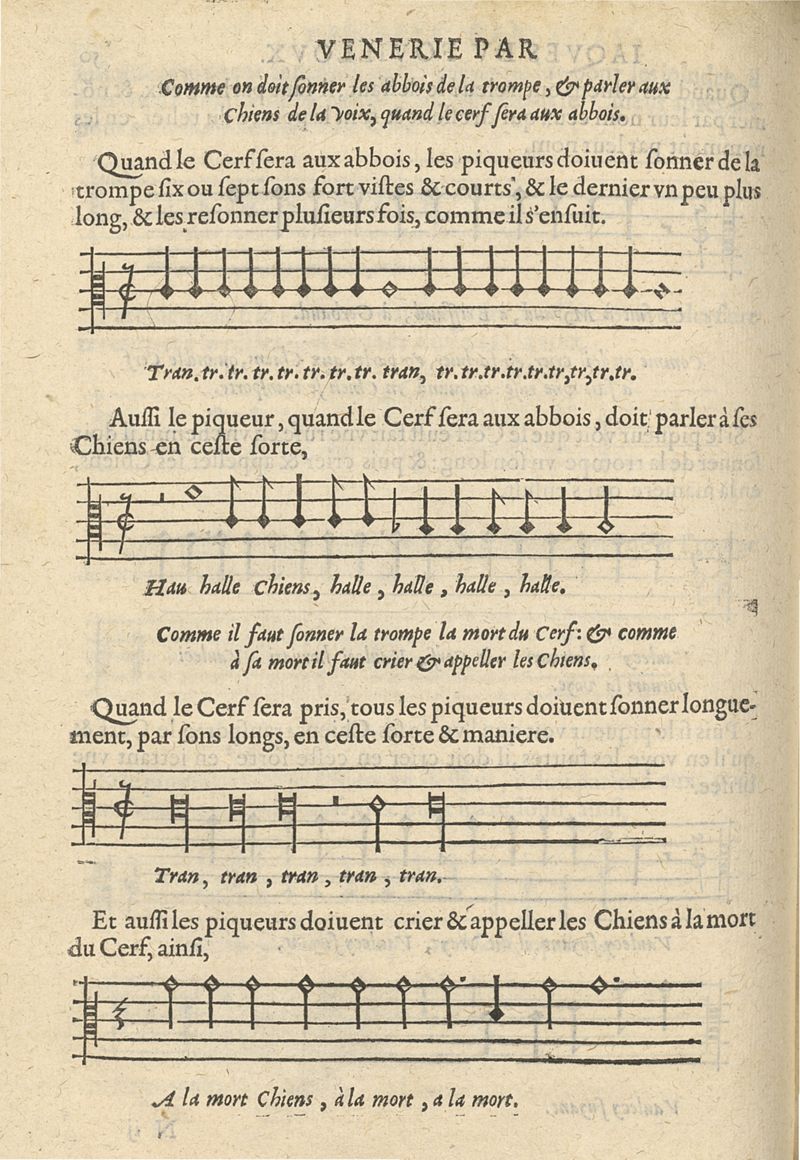 VENERIE PAR
Comme on doit ſonner les abbois de la trompe, & parler aux
Chiens de la voix, quand le cerf ſera aux abbois.
Quand le Cerf ſera aux abbois, les piqueurs doiuent ſonner de la
trompe ſix ou ſept ſons fort viſtes & courts, & le dernier vn peu plus
long, & les reſonner pluſieurs fois, comme il s'enſuit.
Tran. tr. tr. tr. tr. tr. tr. tr. tran, tr. tr. tr. tr. tr. tr, tr, tr. tr.
Auſſi le piqueur, quand le Cerf ſera aux abbois, doit parler à ſes
Chiens en ceſte ſorte,
Hau halle Chiens, halle, halle, halle, halle.
Comme il faut ſonner la trompe la mort du Cerf: & comme
à ſa mort il faut crier & appeller les Chiens.
Quand le Cerf ſera pris, tous les piqueurs doiuent ſonner longue-
ment, par ſons longs, en ceſte ſorte & maniere.
Tran, tran, tran, tran, tran.
Et auſſi les piqueurs doiuent crier & appeller les Chiens à la mort
du Cerf, ainſi,
A la mort Chiens, à la mort, a la mort.